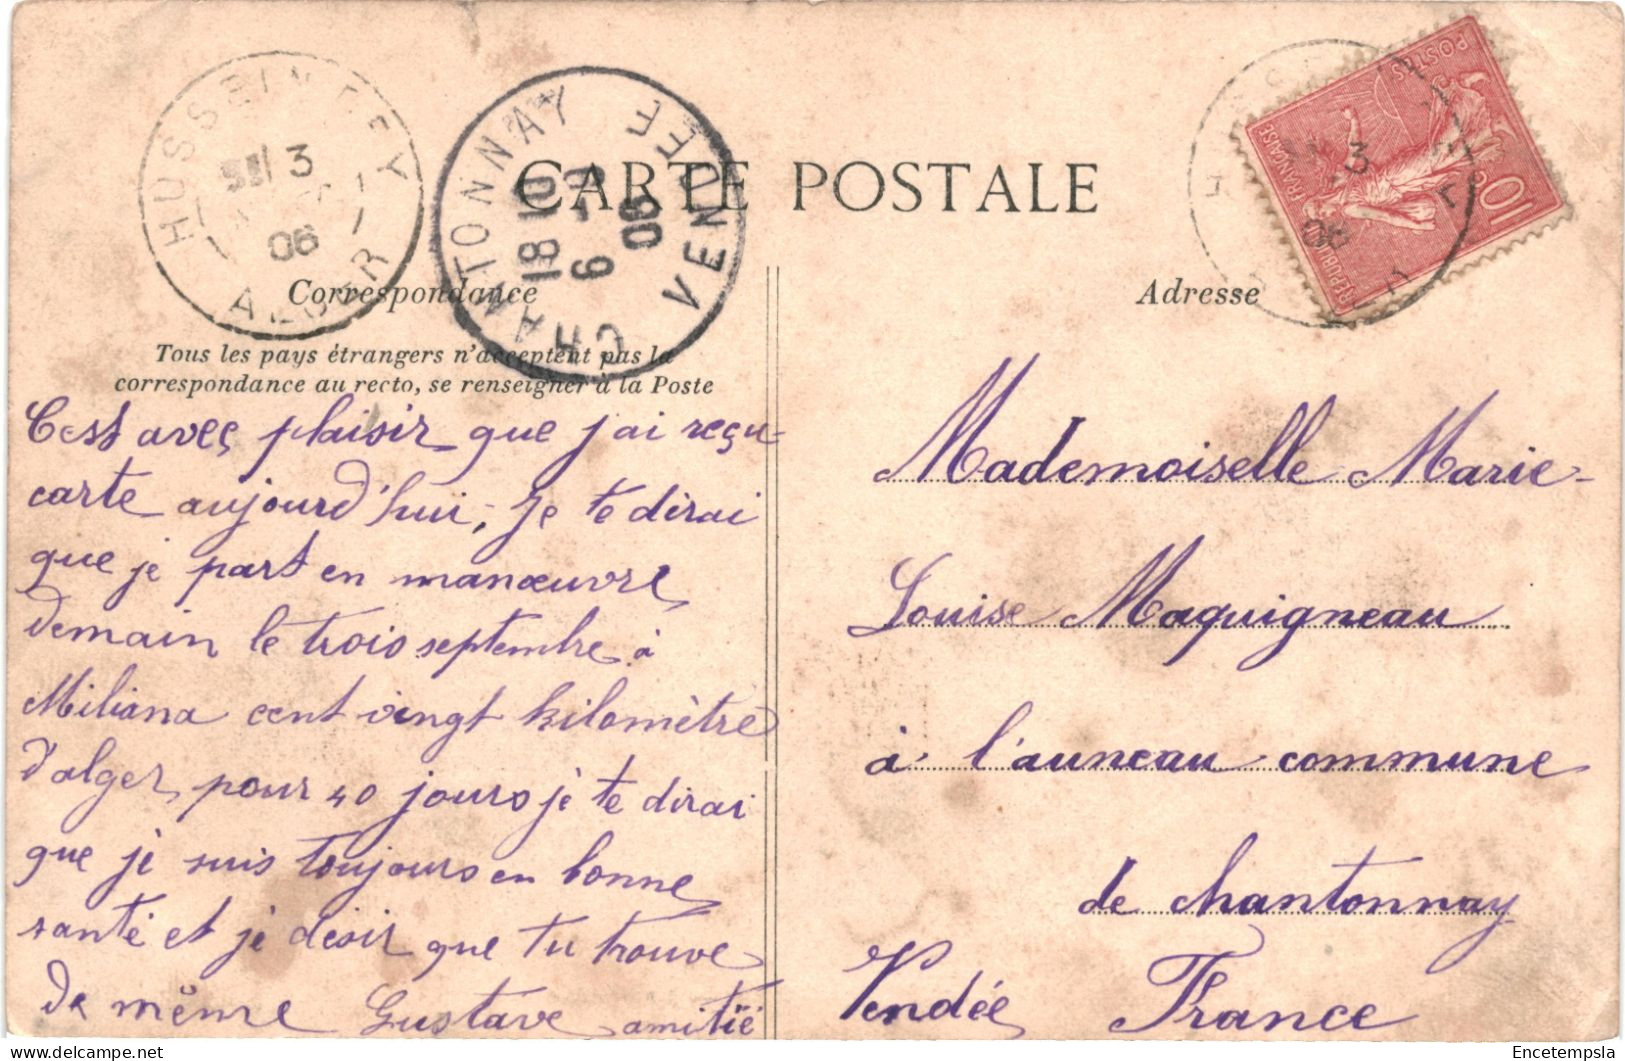 HUSSEIN-DEY
3
06
ALGER
CHANTONNAY
18 10
6 - 9
06
VENDÉE
CARTE POSTALE
3
06
POSTES
10 c
RÉPUBLIQUE FRANÇAISE
Correspondance
Adresse
Tous les pays étrangers n'acceptent pas la
correspondance au recto, se renseigner à la Poste
C'est aveç plaisir que j'ai reçu
carte aujourd'hui, Je te dirai
que je part en manœuvre
demain le trois septembre à
Miliana cent vingt kilomètre
d'alger pour 40 jours je te dirai
que je suis toujours en bonne
santé et je désir que tu trouve
de même Gustave amitié
Mademoiselle Marie-
Louise Maquigneau
à l'auneau commune
de chantonnay
Vendée France
Encetempsla